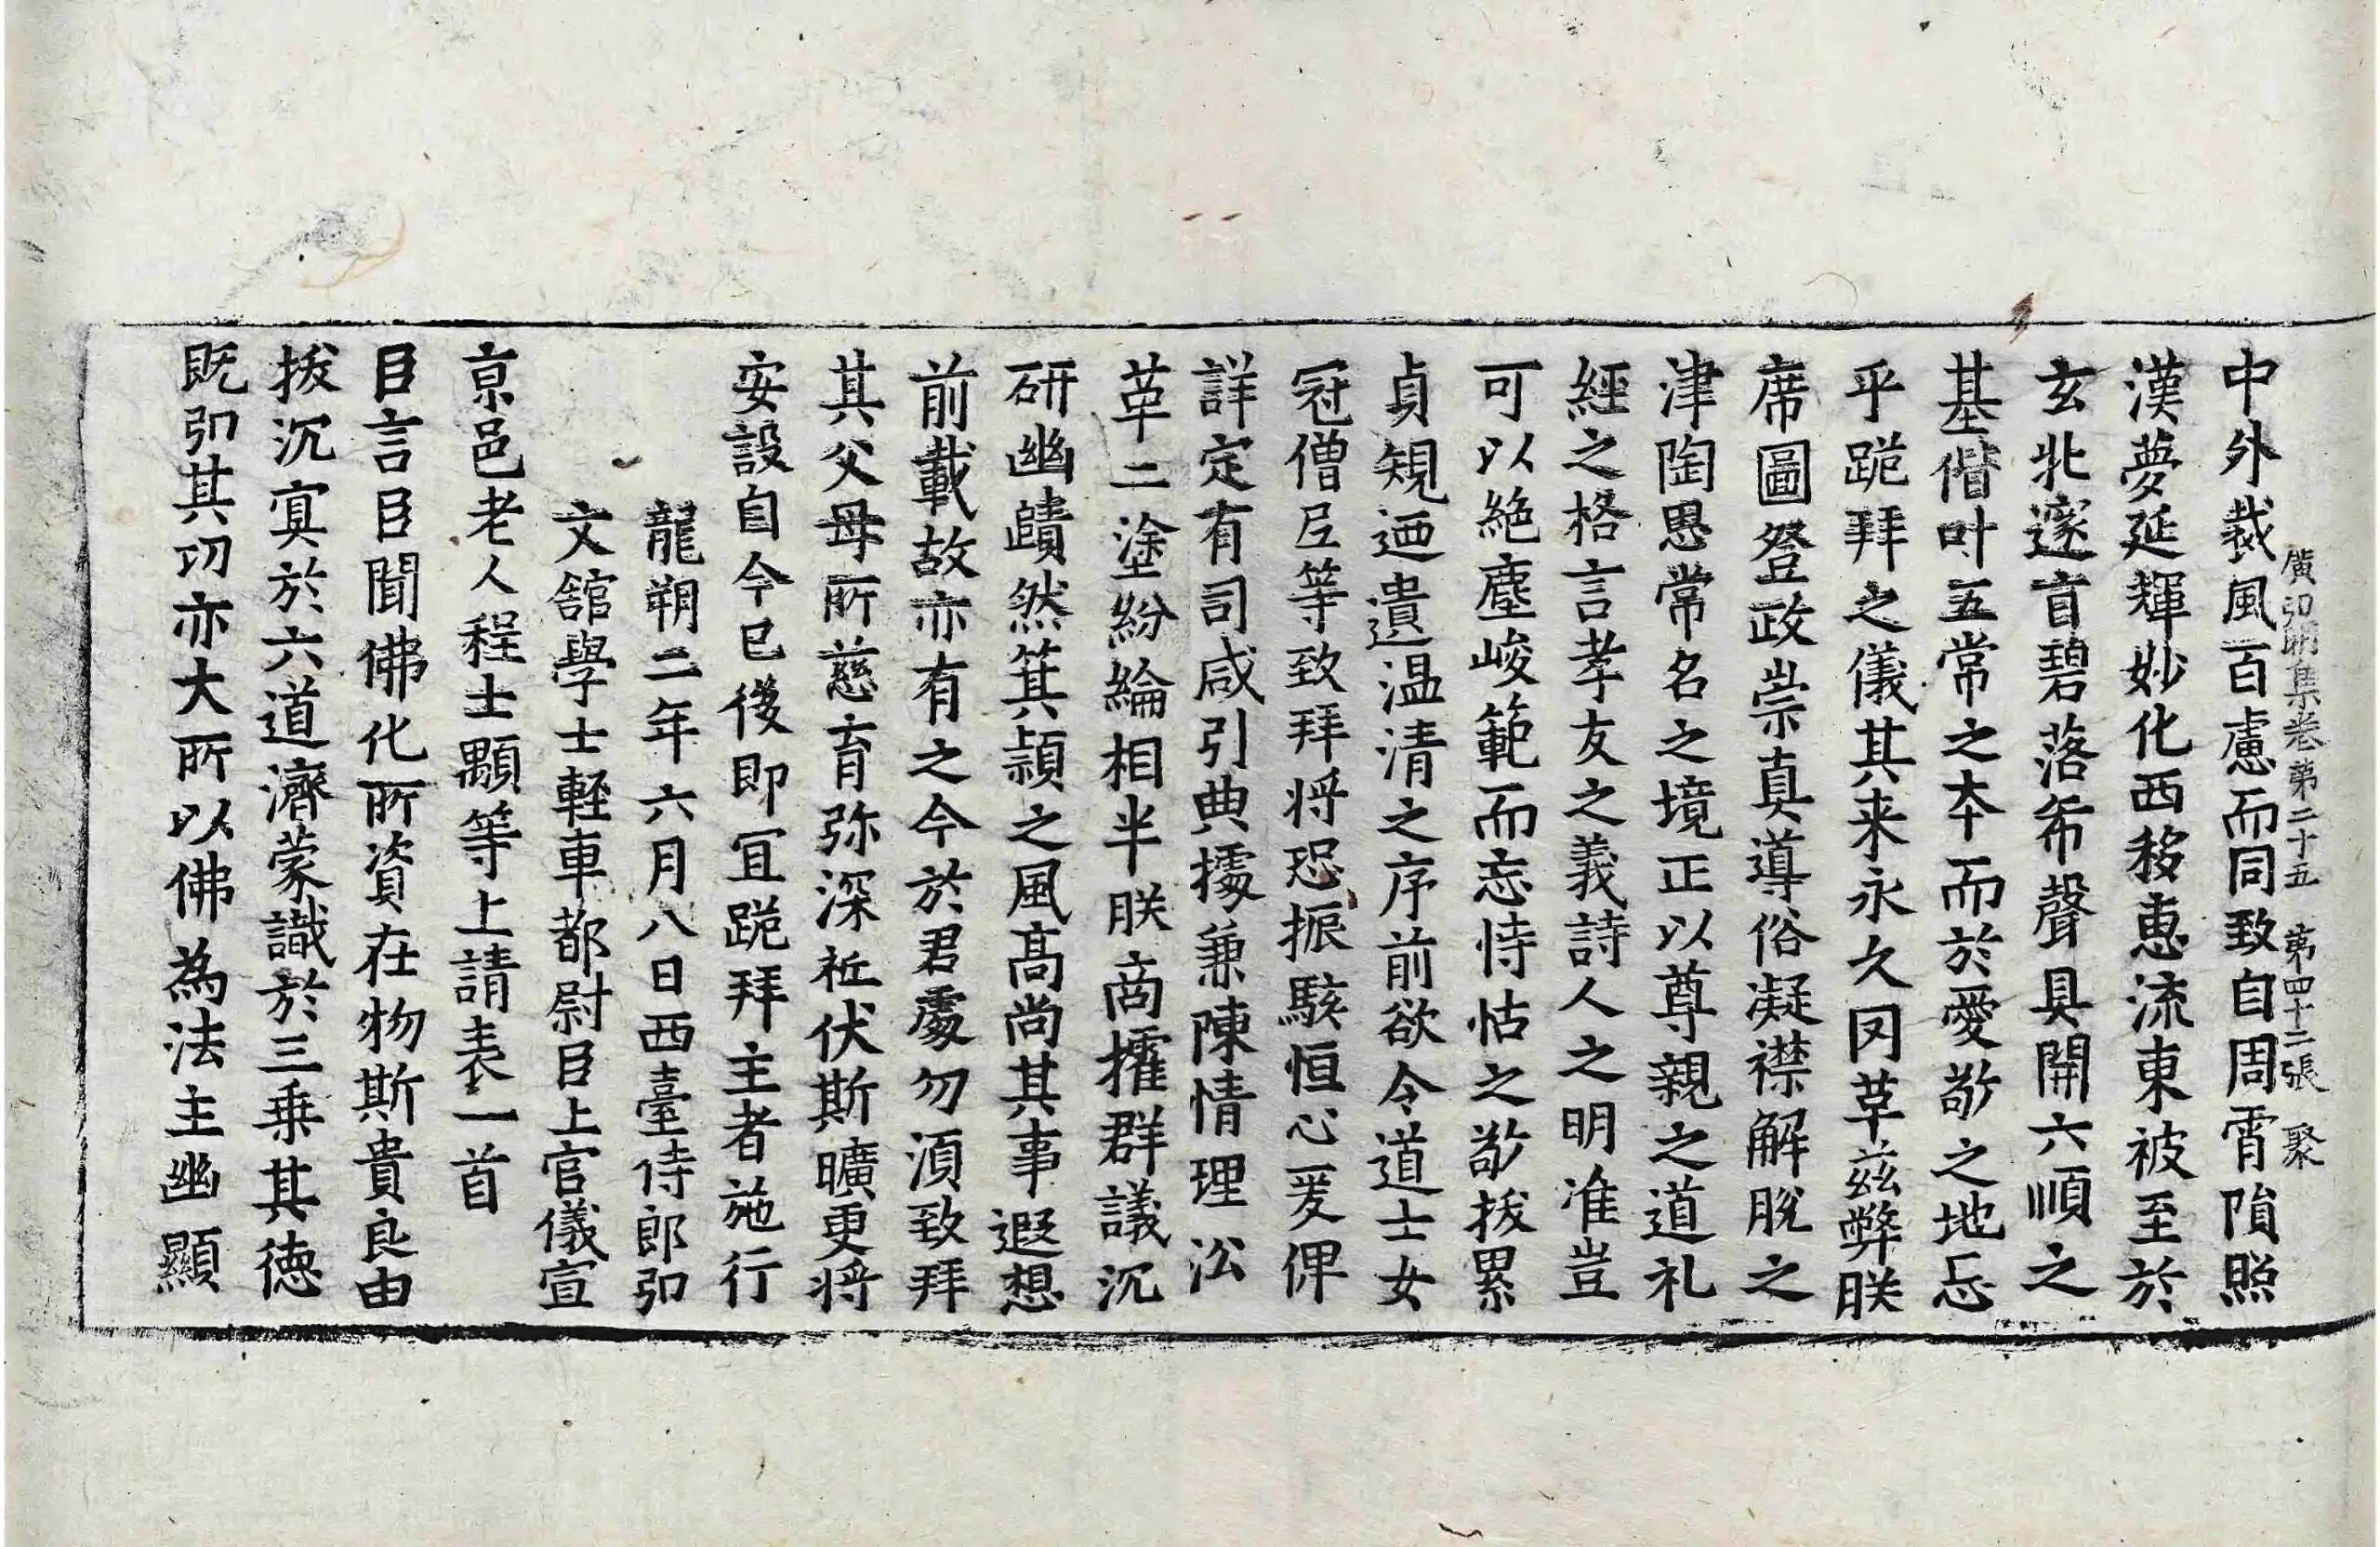 廣弘明集卷第二十五　第四十二張　聚
中外裁風百慮而同致自周霄隕照
漢夢延輝妙化西移惠流東被至於
玄牝邃旨碧落希聲具開六順之
基偕叶五常之本而於愛敬之地忘
乎跪拜之儀其来永久罔革茲弊朕
席圖登政崇真導俗凝襟解脫之
津陶思常名之境正以尊親之道礼
經之格言孝友之義詩人之明准豈
可以絶塵峻範而忘恃怙之敬拔累
貞規迺遺温清之序前欲令道士女
冠僧尼等致拜将恐振駭恒心爰俾
詳定有司咸引典據兼陳情理沿
革二塗紛綸相半朕商攉群議沉
研幽賾然箕頴之風髙尚其事遐想
前載故亦有之今於君處勿湏致拜
其父母所慈育弥深袛伏斯曠更将
安設自今已後即冝跪拜主者施行
龍朔二年六月八日西臺侍郎弘
文舘學士軽車都尉臣上官儀宣
京邑老人程士顒等上請表一首
臣言臣聞佛化所資在物斯貴良由
拔沉冥於六道濟蒙識於三乗其徳
既弘其功亦大所以佛為法主幽顯